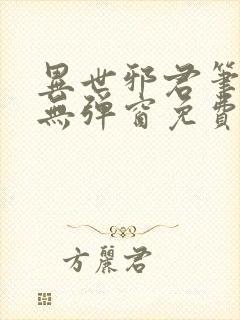 異世邪君筆
無彈窗免費
方麗君